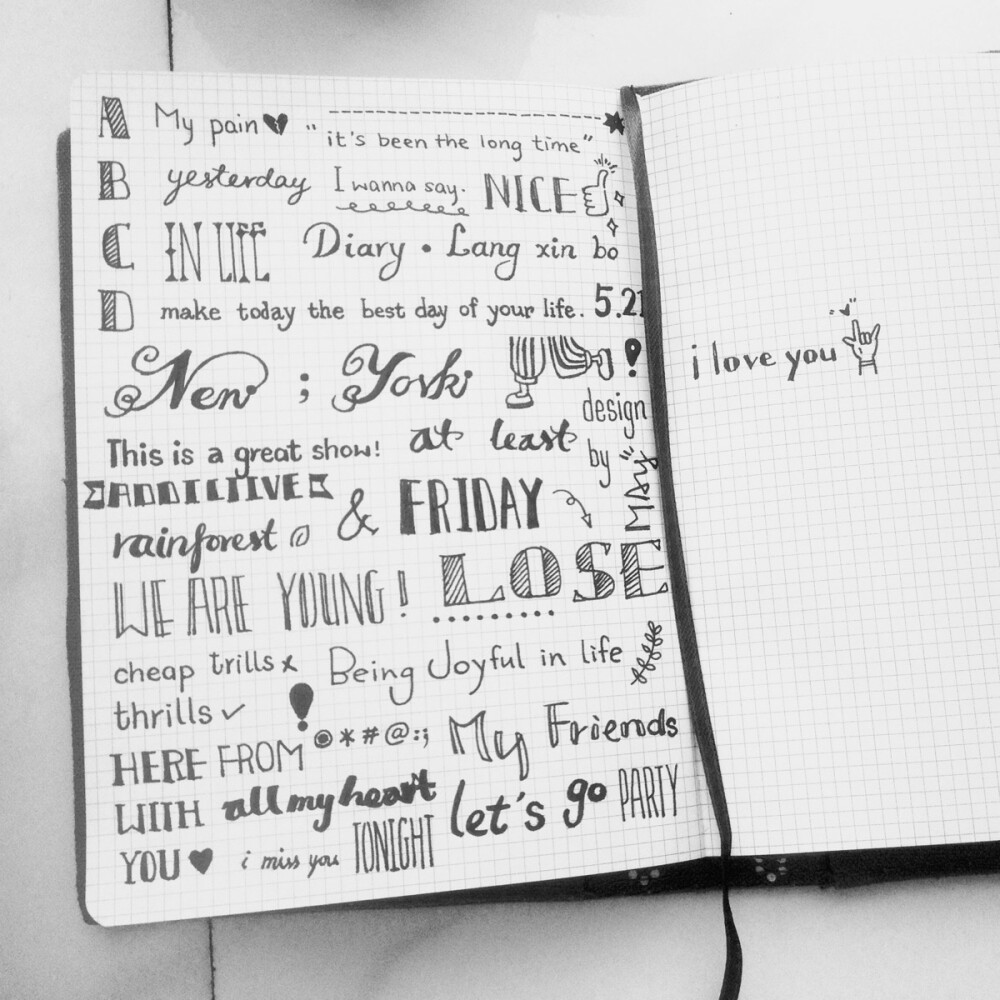 A My pain "it's been the long time"
B yesterday I wanna say. NICE
C IN LIFE Diary • Lang xin bo
D make today the best day of your life. 5.21
New ; York !
design
This is a great show! at least by
ADDICTIVE & FRIDAY MAY
rainforest
WE ARE YOUNG! LOSE
cheap trills x Being Joyful in life
thrills ✓ !
HERE FROM @*#@:; My Friends
WITH all my heart let's go PARTY
YOU i miss you TONIGHT
i love you